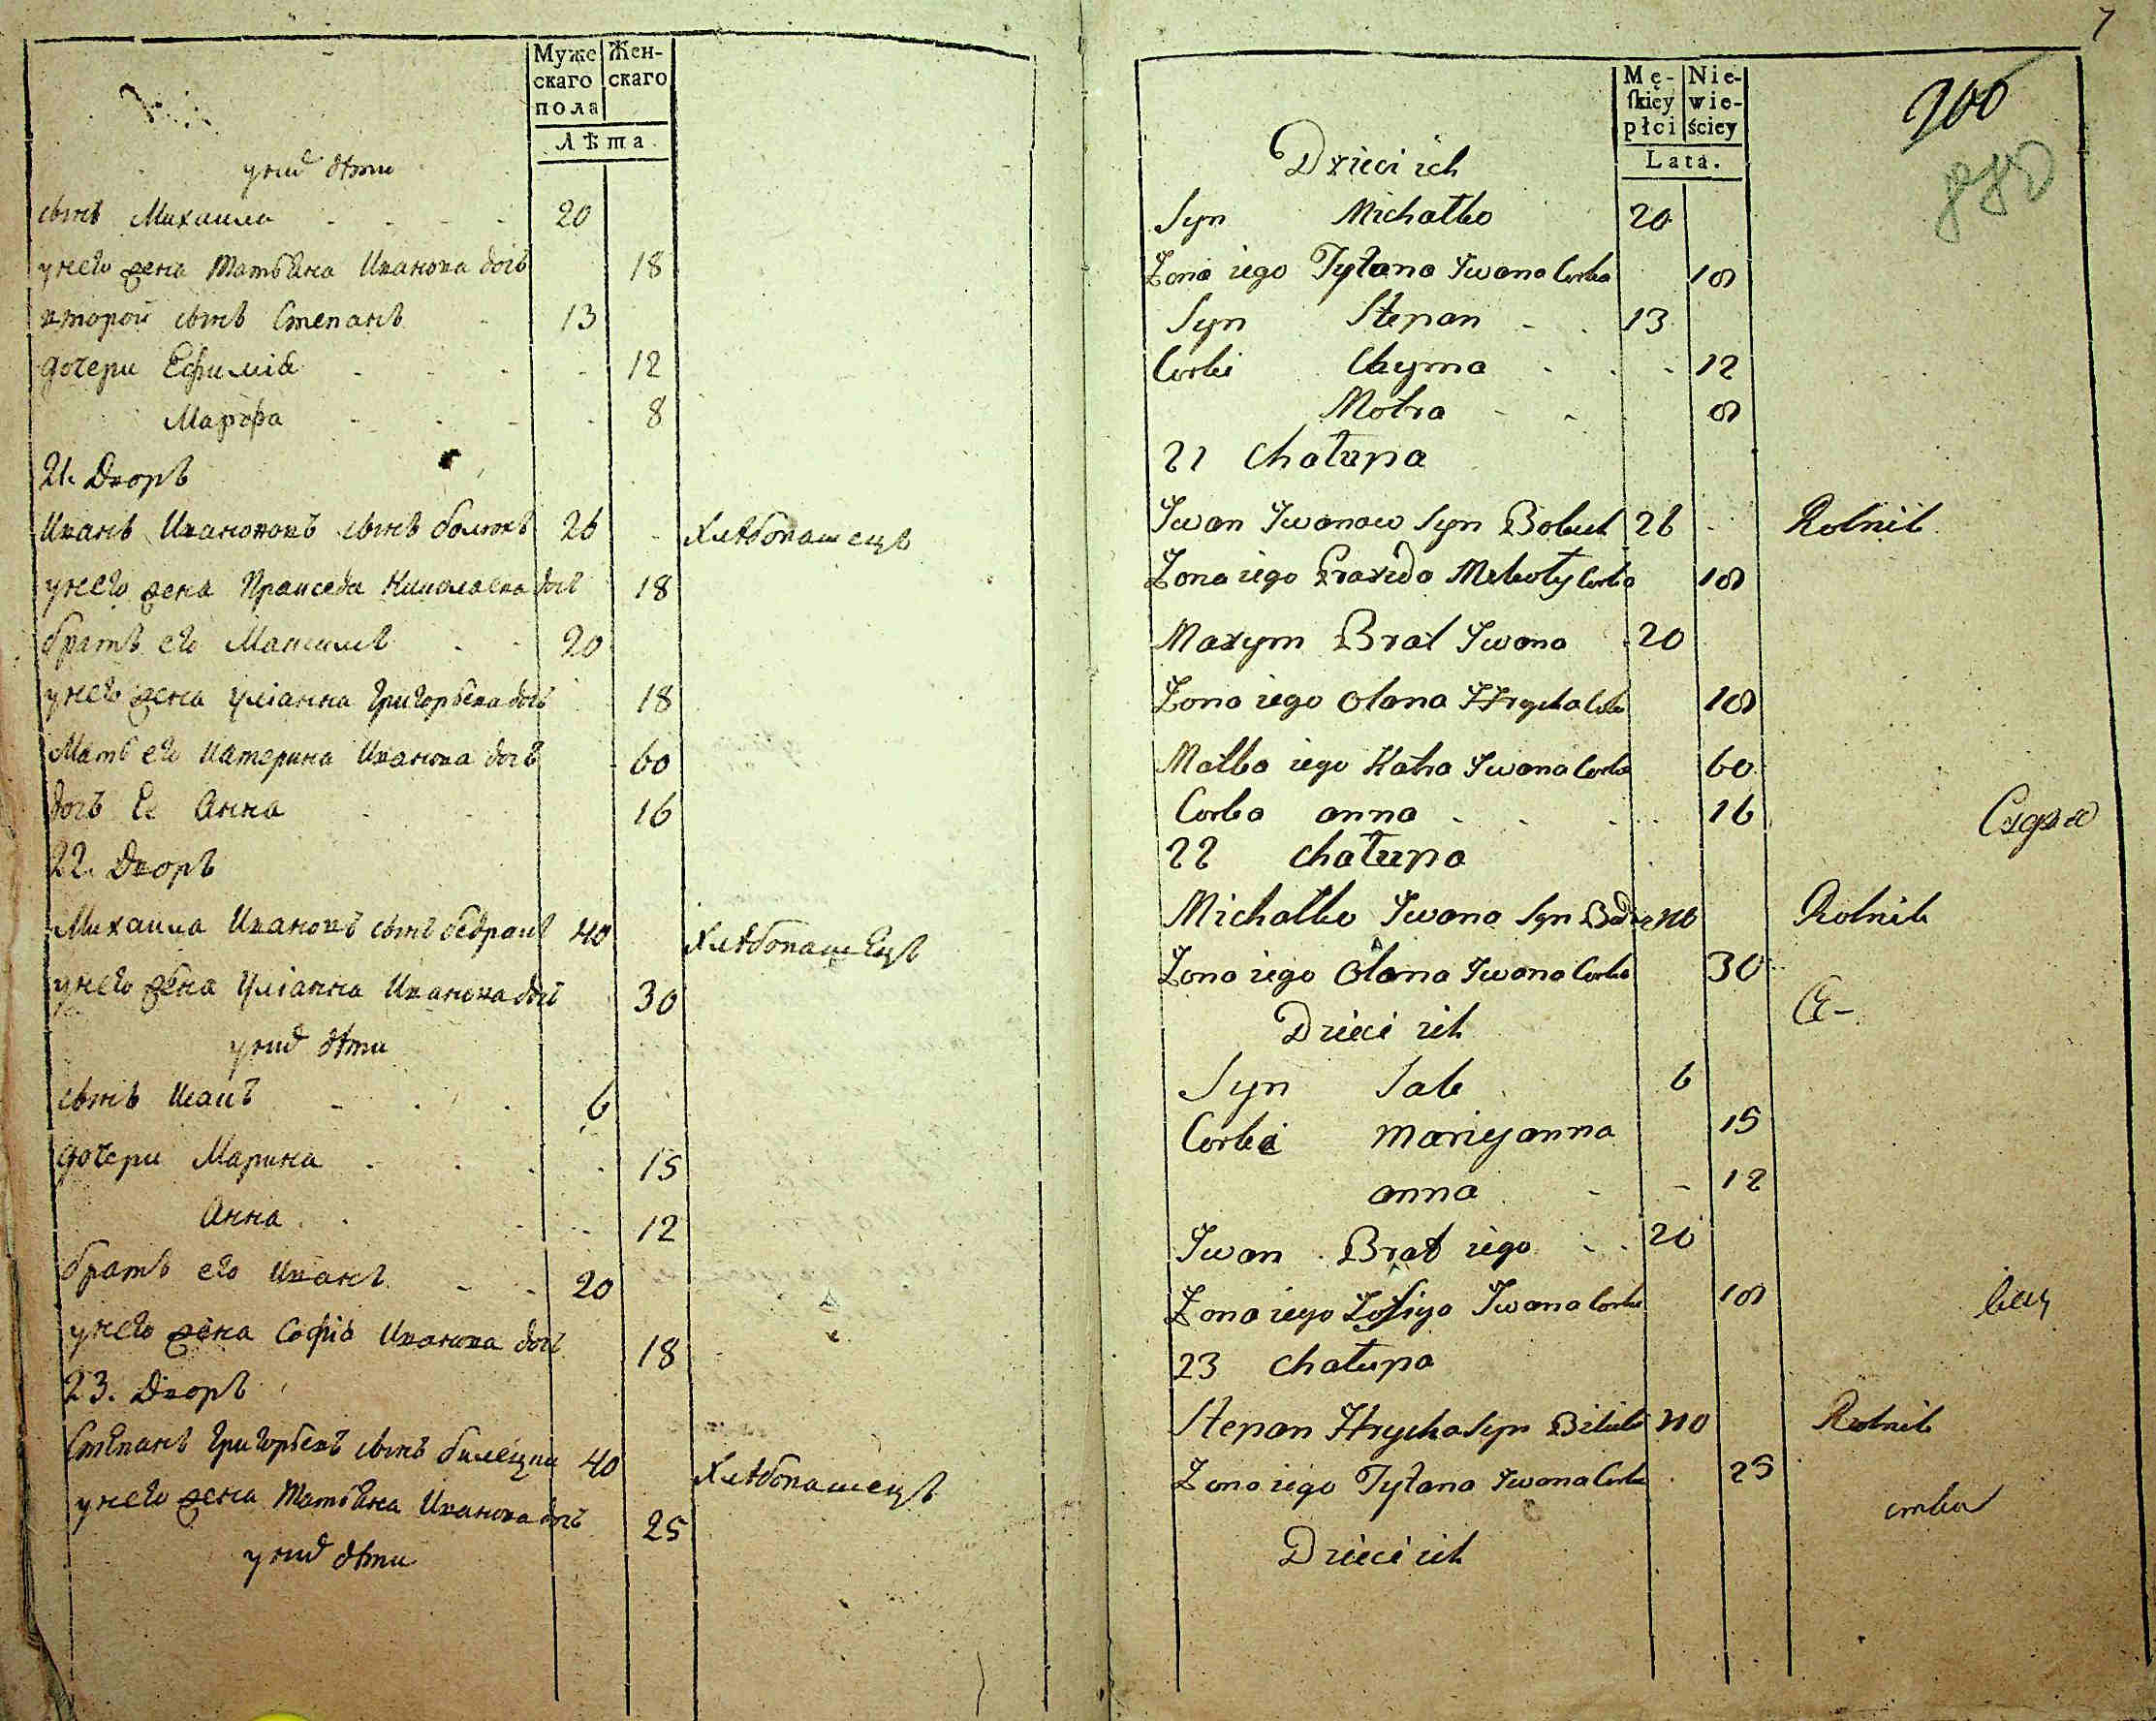 Муже
скаго
пола
Жен-
скаго
Лѣта
у них дѣти
сынъ Михаила 20
у него жена Татьяна Иванова дочь 18
второй сынъ Степанъ 13
дочери Ефимія 12
Марѳа 8
21. Дворъ
Иванъ Ивановъ сынъ 26 Хлѣбопашецъ
у него жена Праиседа Николаева дочь 18
братъ его Максимъ 20
у него жена Уліанна Григорьева дочь 18
Мать его Катерина Иванова дочь 60
дочь Ее Анна 16
22. Дворъ
Михаила Ивановъ сынъ бедракъ 40 Хлѣбопашецъ
у него жена Уліанна Иванова дочь 30
у них дѣти
сынъ Исакъ 6
дочери Марина 15
Анна 12
братъ его Иванъ 20
у него жена Софія Иванова дочь 18
23. Дворъ
Степанъ Григорьевъ сынъ билецки 40 Хлѣбопашецъ
у него жена Татьяна Иванова дочь 25
у них дѣти
7
Mę-
ſkiey
płci
Nie-
wie-
ściey
Lata.
Dzieci ich
Syn Michałko 20
Żona iego Tytana Iwana Corka 18
Syn Stepan 13
Corki Chyma 12
Motra 8
21 Chałupa
Iwan Iwanow Syn 26 Rolnik
Żona iego Praxeda Mekoły Corka 18
Maxym Brat Iwana 20
Żona iego Olana Hrycka Corka 18
Matka iego Katra Iwana Corka 60
Corka anna 16
22 Chałupa
Michałko Iwana Syn 40 Rolnik
Żona iego Olana Iwana Corka 30
Dzieci ich
Syn Sak 6
Corki Maryjanna 15
anna 12
Iwan Brat iego 20
Żona iego Zofiya Iwana Corka 18
23 Chałupa
Stepan Hrycka Syn 40 Rolnik
Żona iego Tytana Iwana Corka 25
Dzieci ich